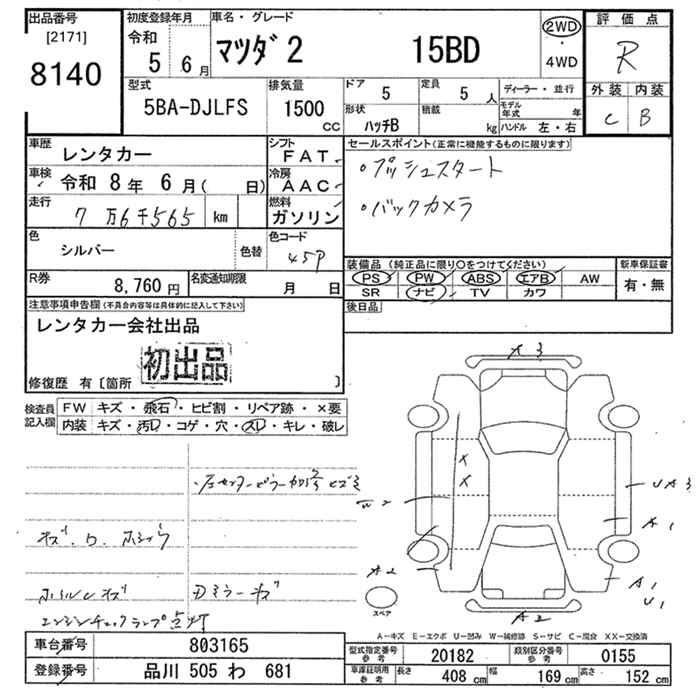 出品番号
[2171]
8140
初度登録年月
令和
5 6月
車名・グレード
マツダ2 15BD
2WD
・
4WD
評価点
R
外装 内装
C B
型式
5BA-DJLFS
排気量
1500
CC
ドア 5
形状 ハッチB
定員 5 人
積載 kg
ディーラー・並行
モデル年式 年
ハンドル 左・右
車歴 レンタカー
車検 令和 8年 6月( 日)
走行 7万6千565 km
シフト FAT
冷房 AAC
燃料 ガソリン
色 シルバー 色替
色コード 45P
R券 8,760円
名変通知期限 月 日
セールスポイント(正常に機能するものに限ります)
・プッシュスタート
・バックカメラ
装備品(純正品に限り○をつけてください)
PS PW ABS エアB AW
SR ナビ TV カワ
新車保証書
有・無
後日品
注意事項申告欄(不具合内容等は具体的に記入して下さい)
レンタカー会社出品
初出品
修復歴 有〔箇所 〕
検査員記入欄
FW キズ・飛石・ヒビ割・リペア跡・×要
内装 キズ・汚レ・コゲ・穴・スレ・キレ・破レ
ホイルキズ
Dミラーキズ
エンジンチェックランプ点灯
A3
X
X
W2
A2
UA3
A1
A1
U1
A2
スペア
A-キズ E-エクボ U-凹み W-補修跡 S-サビ C-腐食 XX-交換済
車台番号 803165
登録番号 品川 505 わ 681
型式指定番号 参考 20182
類別区分番号 参考 0155
車庫証明用 参考 長さ 408 cm 幅 169 cm 高さ 152 cm